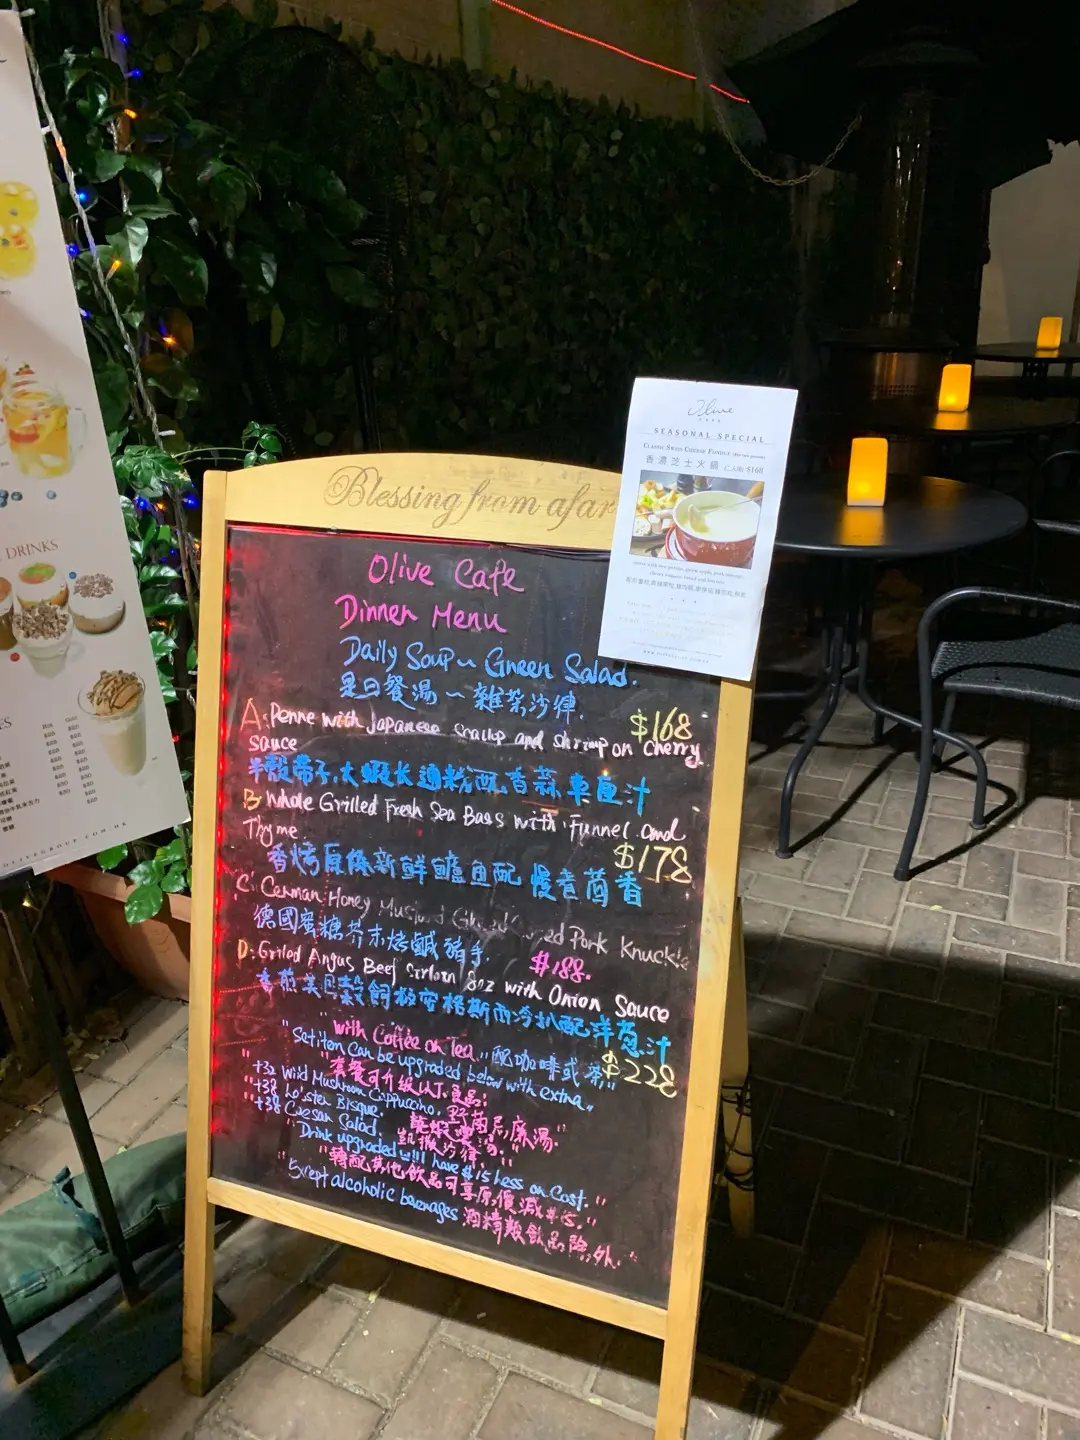 DRINKS
Blessing from afar
Olive
CAFE
SEASONAL SPECIAL
CLASSIC SWISS CHEESE FONDUE (for two persons)
香濃芝士火鍋 (二人用) $168
Olive Cafe
Dinner Menu
Daily Soup ~ Green Salad.
是日餐湯 ~ 雜菜沙律.
$168
A: Penne with Japanese Scallop and Shrimp on Cherry
Sauce
半殼帶子大蝦长通粉配香蒜車厘汁
B Whole Grilled Fresh Sea Bass with Funnel and
Thyme.
$178
香烤原條新鮮鱸魚配慢煮茴香
C: German Honey Mustard Pork Knuckle
德國蜜糖芥末烤鹹豬手.
$188.
D: Grilled Angus Beef Sirloin 8oz with Onion Sauce
香煎美國穀飼安格斯西冷扒配洋葱汁
"with Coffee or Tea" "配咖啡或茶"
$228
"Set item Can be upgraded below with extra"
"套餐可升级以下食品:
"+32 Wild Mushroom Cappuccino, 野菌忌廉湯."
"+38 Lobster Bisque. 龍蝦濃湯."
"+38 Caesar Salad. 凱撒沙律."
"Drink upgraded will have $15 less on Cost."
"轉配其他飲品可享原價減$15."
"Except alcoholic beverages 酒精類飲品除外."